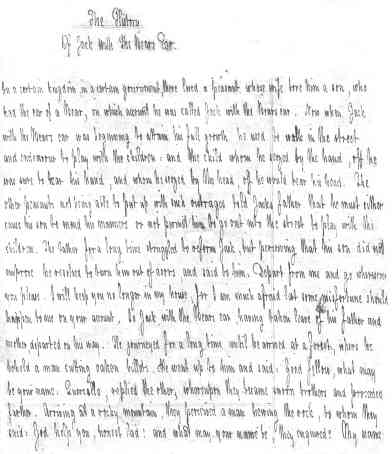 The History
Of Jack with the Bears Ear.
In a certain kingdom in a certain government, there lived a peasant, whose wife bore him a son, who
had the ear of a Bear, on which account he was called Jack with the Bears ear. Now when Jack
with the Bears ear was beginning to attain his full growth he used to walk in the street
and endeavour to play with the children: and the child whom he seized by the hand, off he
was sure to tear his hand, and whom he seized by the head, off he would tear his head. The
other peasants not being able to put up with such outrages told Jacks father that he must either
cause his son to mend his manners or not permit him to go out into the street to play with the
children. The father for a long time struggled to reform Jack, but perceiving that his son did not
improve he resolved to turn him out of doors and said to him. Depart from me and go whersoever
you please. I will keep you no longer in my house, for I am much afraid that some misfortune should
happen to me on your account. So Jack with the Bears ear having taken leave of his father and
mother departed on his way. He journeyed for a long time until he arrived at a forest, where he
beheld a man cutting oaken billets. He went up to him and said: Good fellow, what may
be your name. Quercillo, replied the other, whereupon they became sworn brothers and proceeded
further. Arriving at a rocky mountain, they perceived a man hewing the rock, to whom they
said: God help you, honest lad: and what may your name be, they enquired? My name